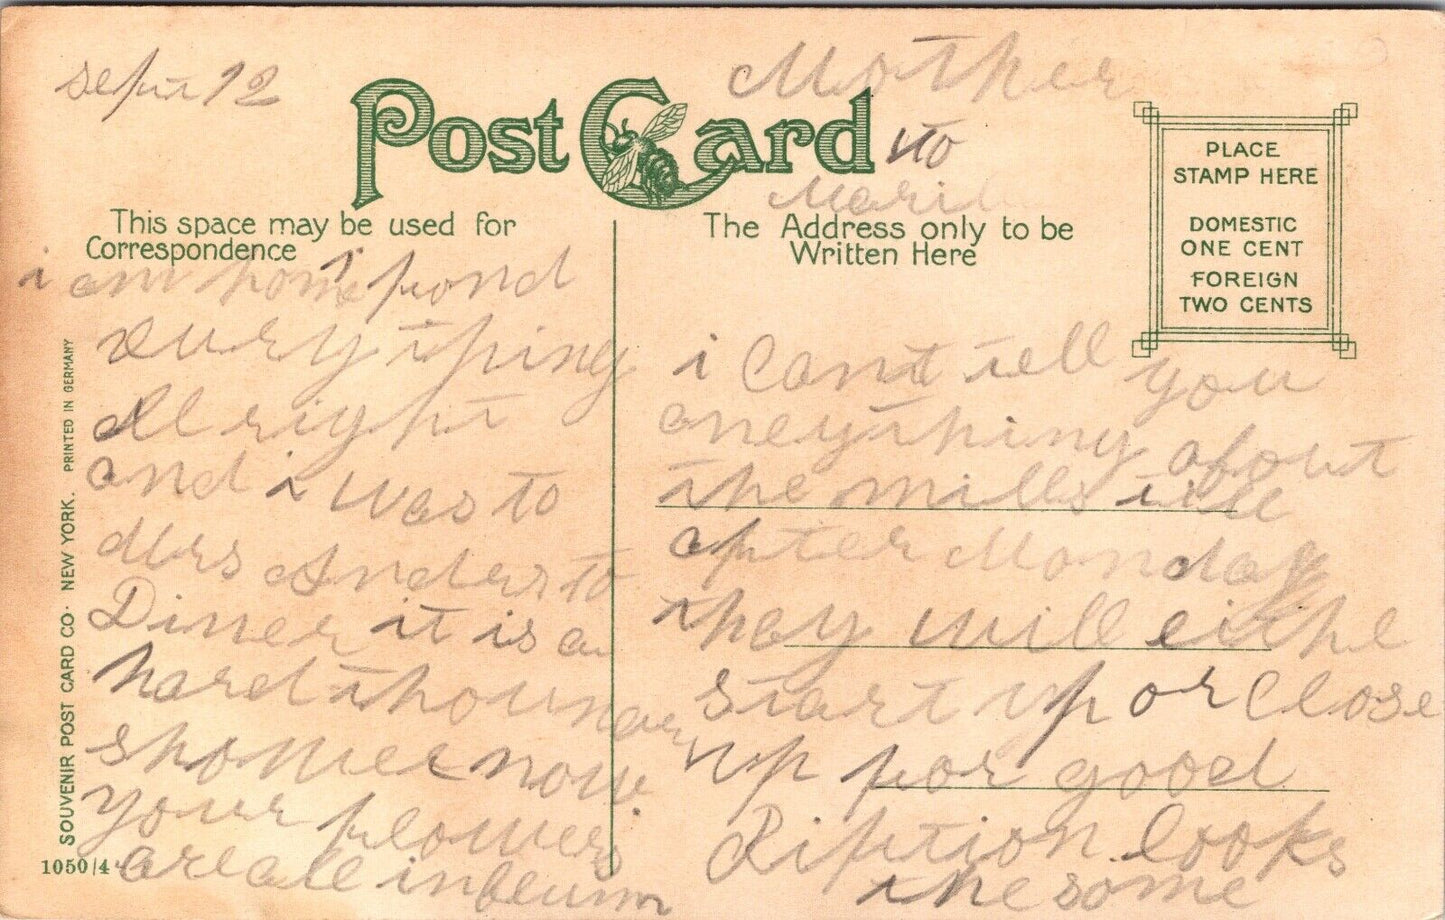 sept 12
Mother
to
Post Card
This space may be used for
Correspondence
The Address only to be
Written Here
PLACE
STAMP HERE
DOMESTIC
ONE CENT
FOREIGN
TWO CENTS
i am home i fond
everything
All right
and i was to
Mrs Anders to
Diner it is a
hard thouner
shower now
your flowers
are all in bloum
i Cant tell you
oneything about
the mills till
after Monday
they will eithe
start up or Close
up for good
Riftion looks
the some
SOUVENIR POST CARD CO. NEW YORK. PRINTED IN GERMANY
1050/4